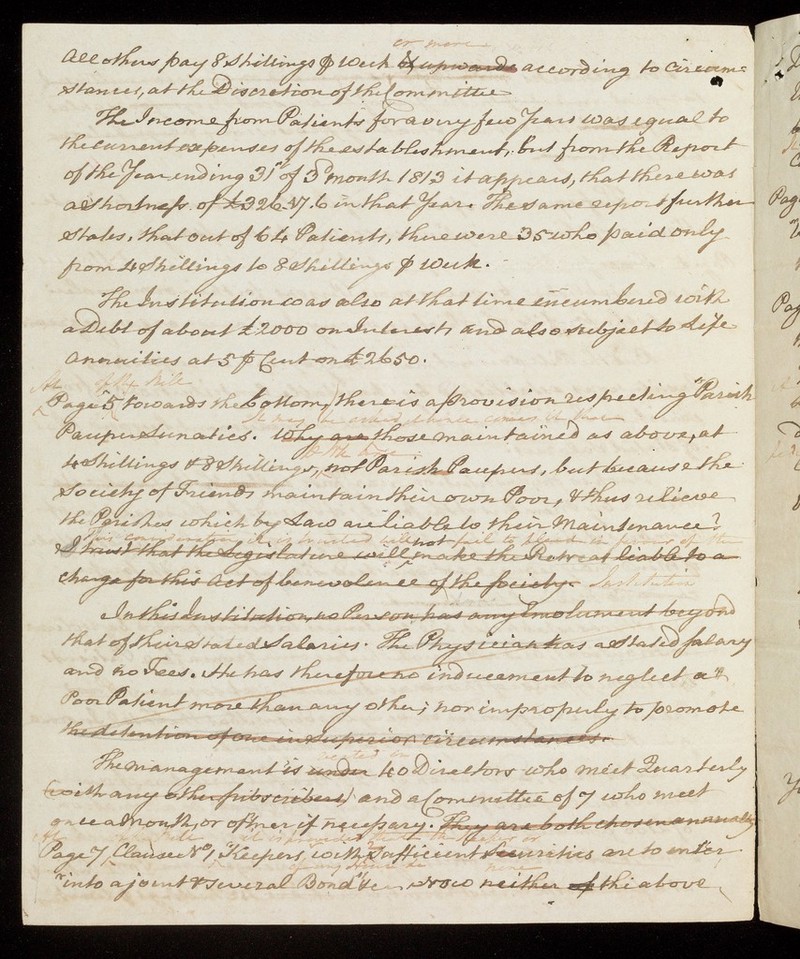 or more
All others pay 8 Shillings ⅌ Week & upwards according to Circum=
stances, at the Discretion of the Committee
The Income from Patients for a very few Years was equal to
the current expenses of the establishment, but from the Report
of the Year ending 31st of 3d month 1813 it appears, that there was
a shortness of £326.17.6 in that Year. The same report further
states, that out of 64 Patients, there were 35 who paid only
from 4 Shillings to 8 Shillings ⅌ Week.
The Institution was also at that time encumbered with
a Debt of about £2000 on Interest, and also subject to Life
Annuities at 5 ⅌ Cent on £2650.
At of the Bill
Page 5 towards the bottom, there is a provision respecting "Parish
it may be asked
Pauper Lunatics. Why are those maintained as above, at
4 Shillings & 8 Shillings, not Parish Paupers, but because the
Society of Friends maintain their own Poor, & thus relieve
the Parishes which by Law are liable to their Maintenance?
This consideration it is trusted will not fail to plead in favor of the
I trust that the Legislature will not make the Retreat liable to a
charge for this act of benevolence of the Society. Institution
In this Institution, no Person has any Emolument beyond
that of their stated Salaries. The Physician has a stated salary
and no Fees. He has therefore no inducement to neglect a
Poor Patient more than any other; nor improperly to promote
the detention of one in superior circumstances.
The management is under 40 Directors who meet Quarterly
(with any other subscribers) and a Committee of 7 who meet
once a Month, or oftner if necessary. They are both chosen annually
Page 7, Clause No 1, "Keepers, with sufficient Securities are to enter
"into a joint & several Bond" &c Now neither of the above